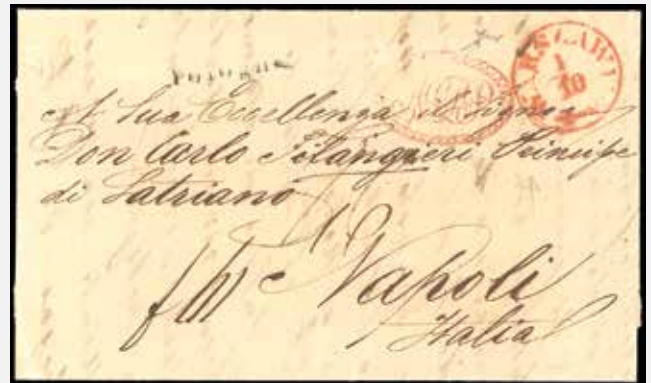 WARSZAWA
1
10
Pologne
A Sua Eccellenza il Signor
Don Carlo Filangieri Principe
di Satriano
Napoli
Italia